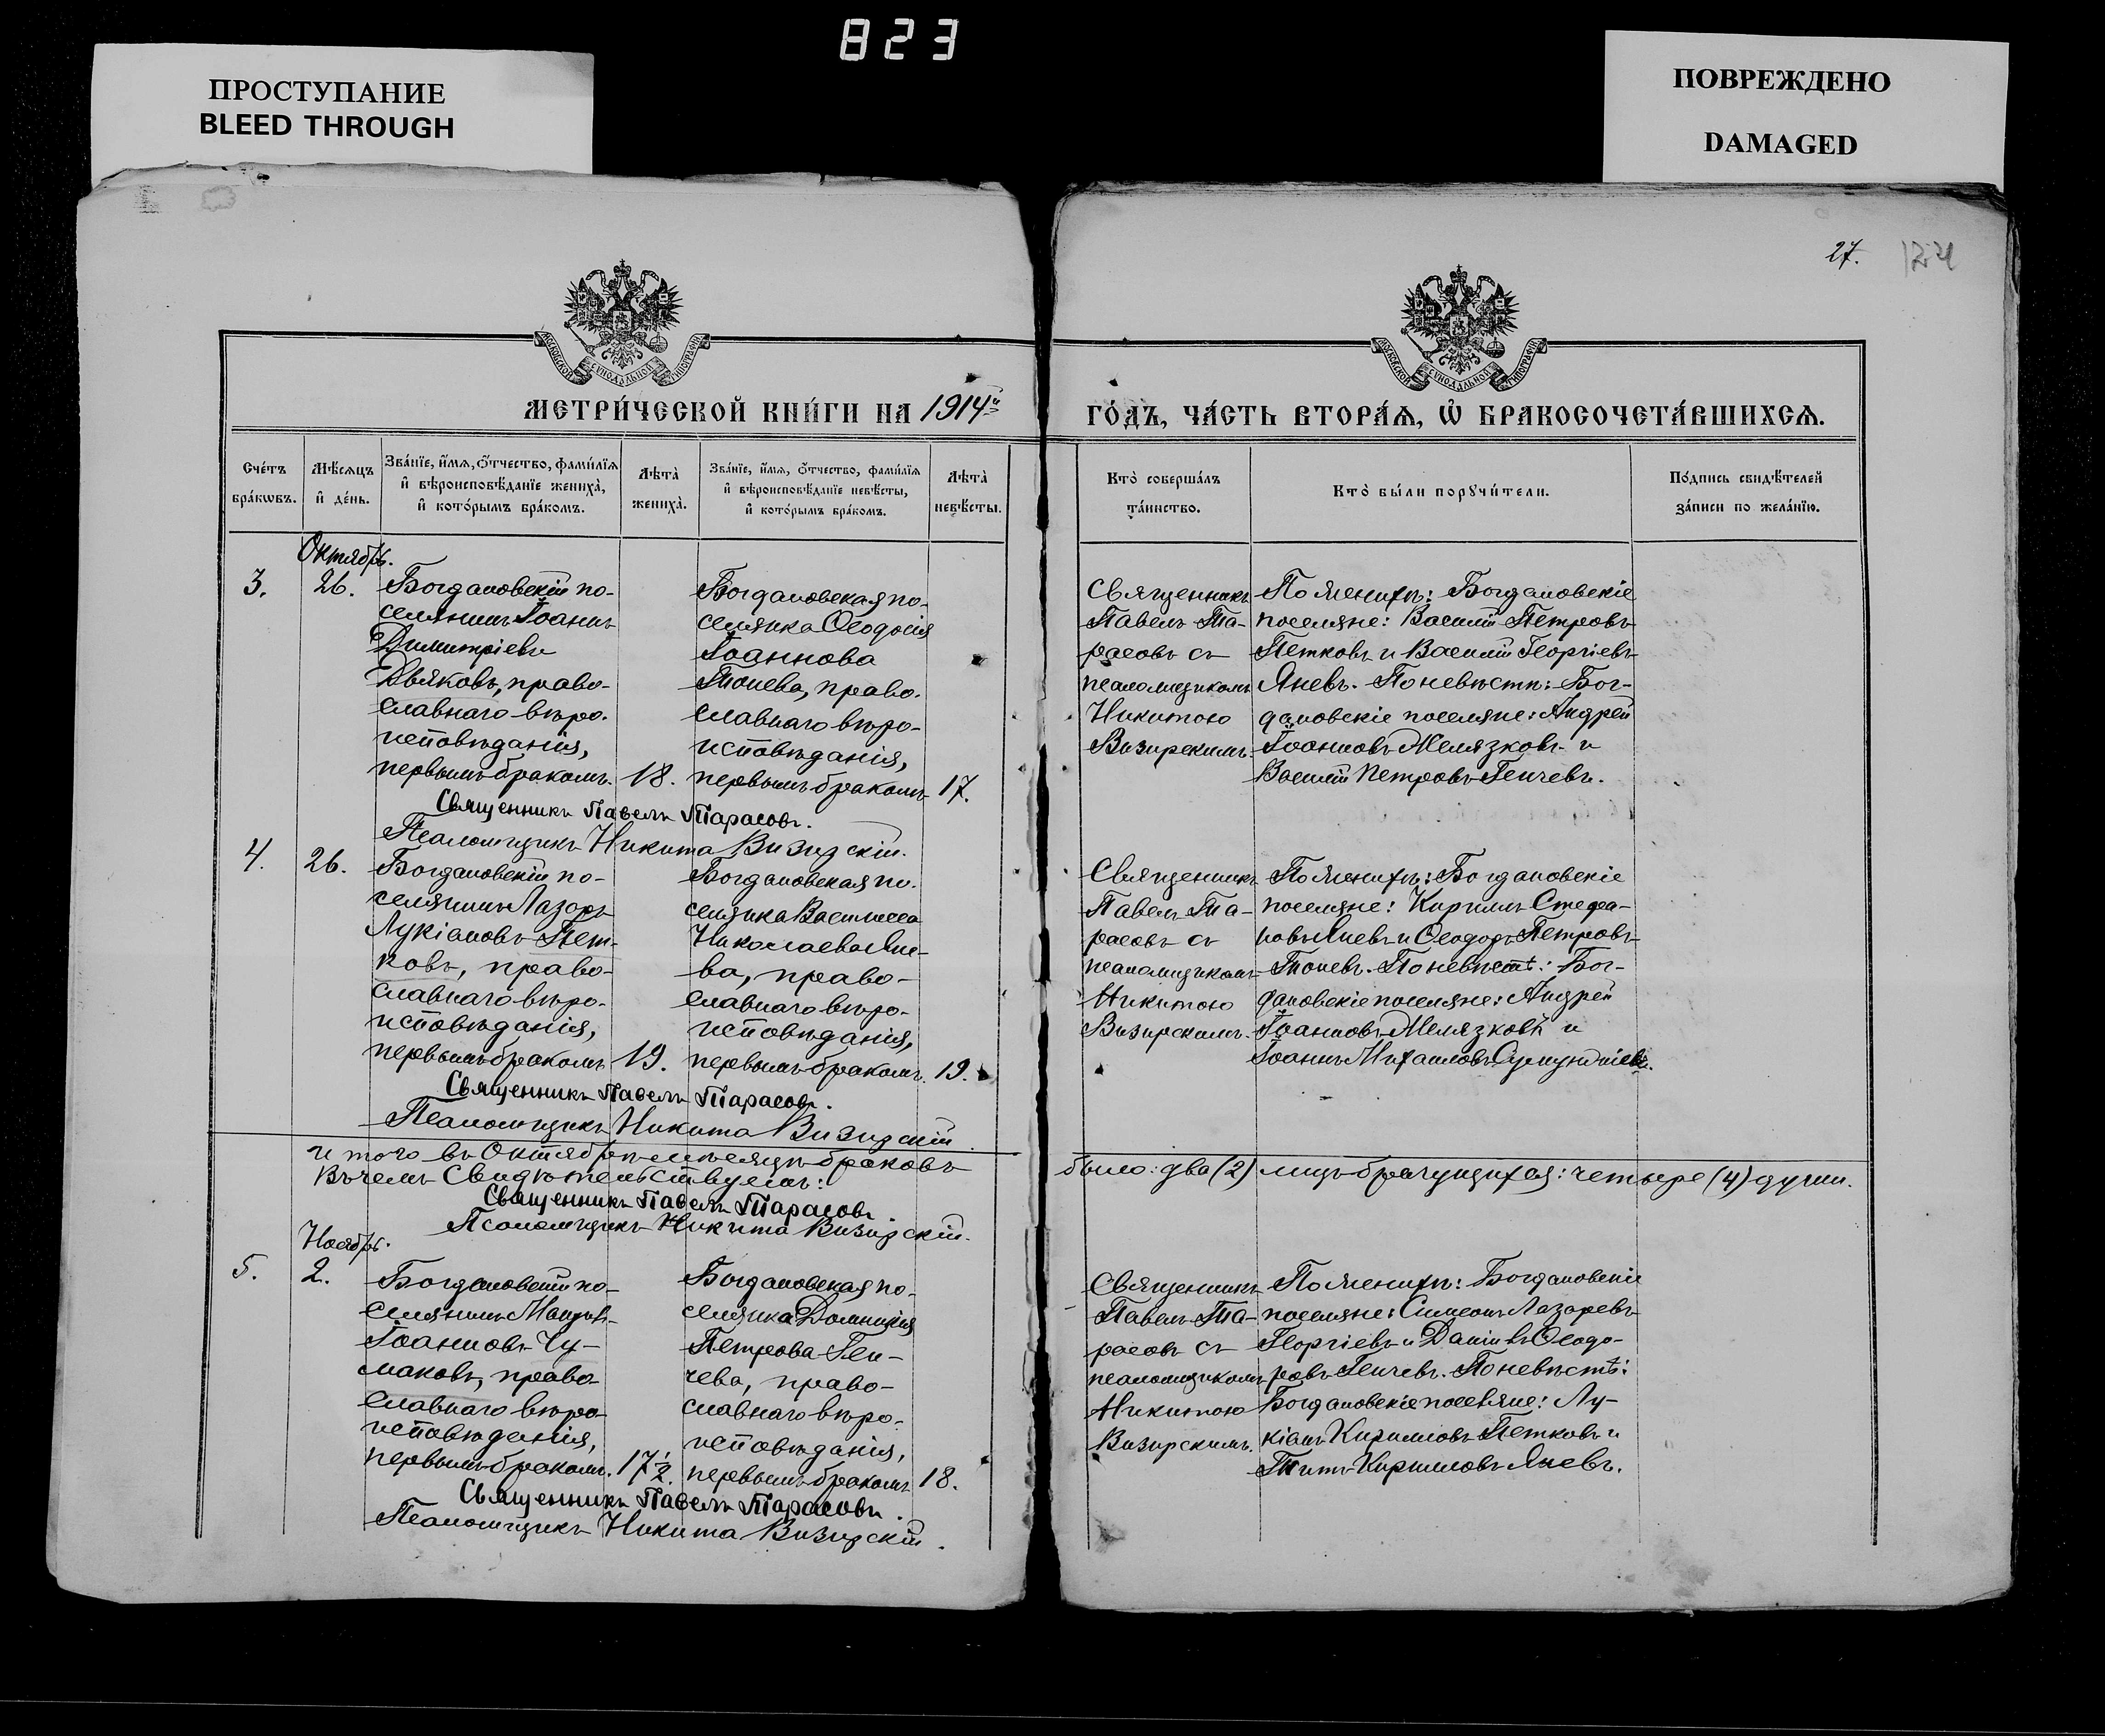 823
ПРОСТУПАНИЕ
BLEED THROUGH
ПОВРЕЖДЕНО
DAMAGED
27.
124
МОСКОВСКОЙ СУНОДАЛЬНОЙ ТИПОГРАФІИ
МОСКОВСКОЙ СУНОДАЛЬНОЙ ТИПОГРАФІИ
МЕТРИ́ЧЕСКОЙ КНИ́ГИ НА 1914й
ГО́ДЪ, ЧА́СТЬ ВТОРА́Ѧ, Ѡ БРАКОСОЧЕТА́ВШИХСѦ.
Сче́тъ
бра́кѡвъ.
Мѣ́сѧцъ
и҆ де́нь.
Зва́нїе, и҆́мѧ, ѻ҆́тчество, фами́лїѧ
и҆ вѣроисповѣ́данїе жениха̀,
и҆ кото́рымъ бра́комъ.
Лѣта̀
жениха̀.
Зва́нїе, и҆́мѧ, ѻ҆́тчество, фами́лїѧ
и҆ вѣроисповѣ́данїе невѣ́сты,
и҆ кото́рымъ бра́комъ.
Лѣта̀
невѣ́сты.
Кто̀ соверша́лъ
та́инство.
Кто̀ бы́ли порꙋчи́тели.
По́дпись свидѣ́телей
за́писи по жела́нїю.
Октябрь.
3.
26.
Богдановскій по-
селянинъ Іоаннъ
Димитріевъ
Дьяковъ, право-
славнаго вѣро-
исповѣданія,
первымъ бракомъ.
18.
Богдановская по-
селянка Ѳеодосія
Іоаннова
Тонева, право-
славнаго вѣро-
исповѣданія,
первымъ бракомъ
17.
Священникъ
Павелъ Та-
расовъ съ
псаломщикомъ
Никитою
Визирскимъ.
По женихѣ: Богдановскіе
поселяне: Василій Петровъ
Петковъ и Василій Георгіевъ
Яневъ. По невѣстѣ: Бог-
дановскіе поселяне: Андрей
Іоанновъ Желязковъ и
Василій Петровъ Генчевъ.
Священникъ Павелъ Тарасовъ.
Псаломщикъ Никита Визирскій.
4.
26.
Богдановскій по-
селянинъ Лазарь
Лукіановъ Пет-
ковъ, право-
славнаго вѣро-
исповѣданія,
первымъ бракомъ
19.
Богдановская по-
селянка Василисса
Николаева Яне-
ва, право-
славнаго вѣро-
исповѣданія,
первымъ бракомъ.
19.
Священникъ
Павелъ Та-
расовъ съ
псаломщикомъ
Никитою
Визирскимъ.
По женихѣ: Богдановскіе
поселяне: Кириллъ Стефа-
новъ Яневъ и Ѳеодоръ Петровъ
Тоневъ. По невѣстѣ: Бог-
дановскіе поселяне: Андрей
Іоанновъ Желязковъ и
Іоаннъ Михаиловъ
Священникъ Павелъ Тарасовъ.
Псаломщикъ Никита Визирскій
Итого въ Октябрѣ мѣсяцѣ браковъ
было: два (2) лицъ брачущихся: четыре (4) души.
Въ чемъ свидѣтельствуемъ:
Священникъ Павелъ Тарасовъ.
Псаломщикъ Никита Визирскій.
Ноябрь.
5.
2.
Богдановскій по-
селянинъ
Іоанновъ Чу-
маковъ, право-
славнаго вѣро-
исповѣданія,
первымъ бракомъ.
17 1/2.
Богдановская по-
селянка Домникія
Петрова Ген-
чева, право-
славнаго вѣро-
исповѣданія,
первымъ бракомъ
18.
Священникъ
Павелъ Та-
расовъ съ
псаломщикомъ
Никитою
Визирскимъ.
По женихѣ: Богдановскіе
поселяне: Симеонъ Лазаревъ
Георгіевъ и Даніилъ Ѳеодо-
ровъ Генчевъ. По невѣстѣ:
Богдановскіе поселяне: Лу-
кіанъ Кирилловъ Петковъ и
Титъ Кирилловъ Яневъ.
Священникъ Павелъ Тарасовъ.
Псаломщикъ Никита Визирскій.